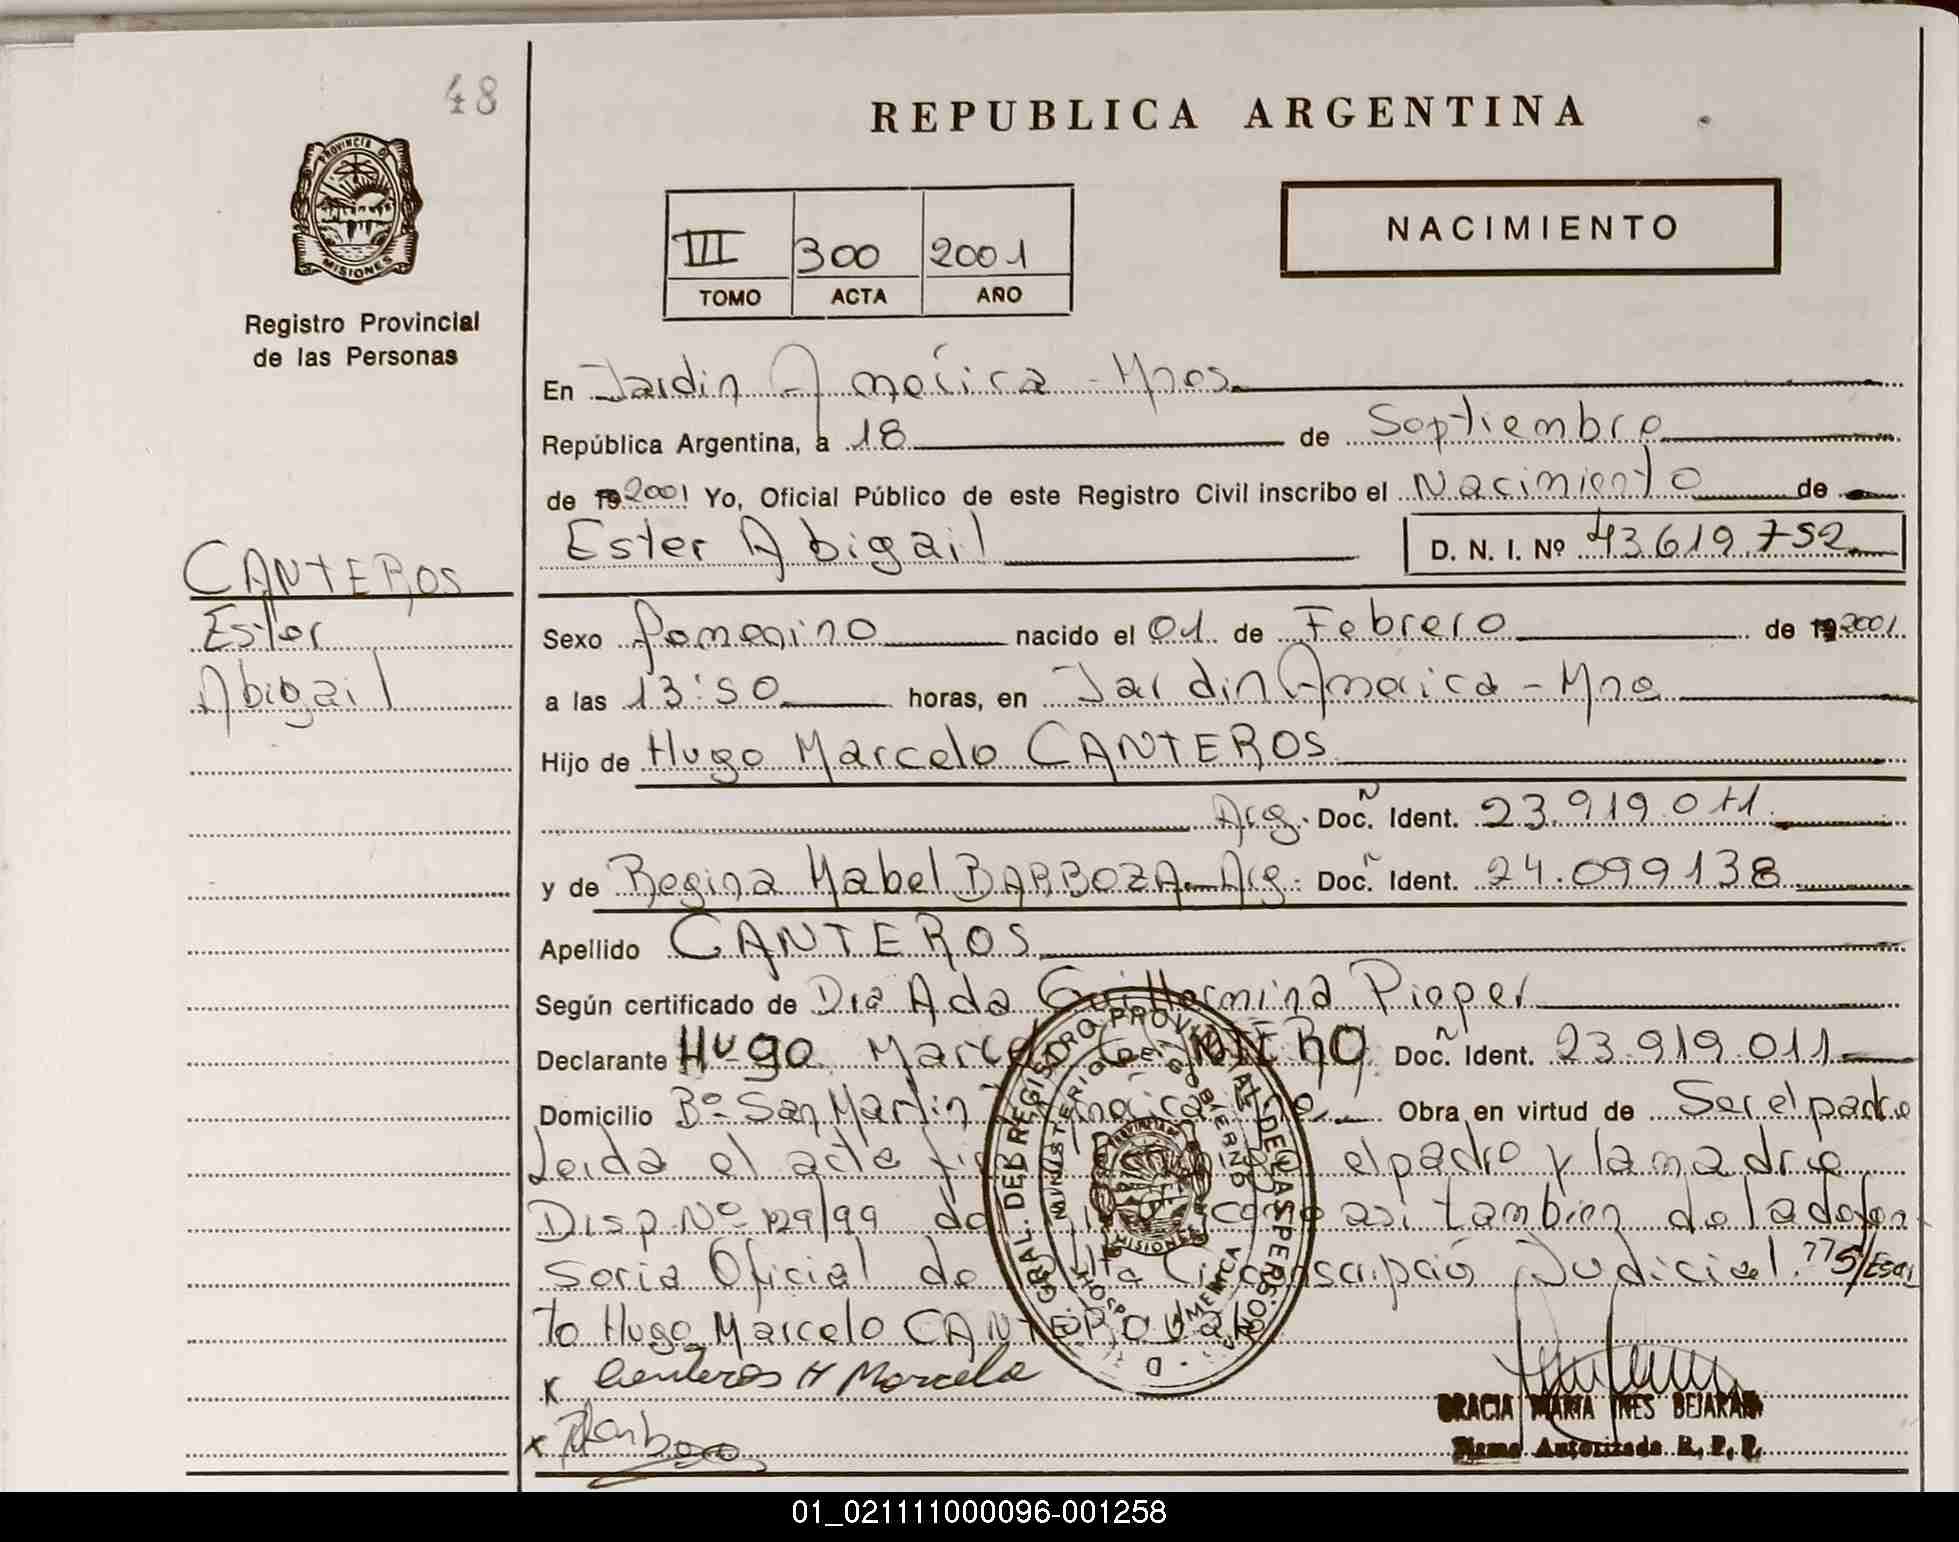 48
REPUBLICA ARGENTINA
PROVINCIA DE
MISIONES
Registro Provincial
de las Personas
III 300 2001
TOMO ACTA AÑO
NACIMIENTO
En Jardin América - Mnes
República Argentina, a 18 de Septiembre
de 19 2001 Yo, Oficial Público de este Registro Civil inscribo el Nacimiento de
Ester Abigail D. N. I. Nº 43.619.752
CANTEROS
Ester
Abigail
Sexo Femenino nacido el 01 de Febrero de 19 2001
a las 13:50 horas, en Jardin America - Mne
Hijo de Hugo Marcelo CANTEROS
Arg. Doc. Ident. 23.919.011
y de Regina Mabel BARBOZA - Arg. Doc. Ident. 24.099138
Apellido CANTEROS
Según certificado de Dra Ada Guillermina Pieper
Declarante Hugo Doc. Ident. 23.919.011
Domicilio Bº San Martin Obra en virtud de Ser el padre
Leida el acta el padre y la madre
Disp. Nº 129/99 asi tambien de la defen
soria Oficial de Circunscripció Judicial. 775/Escri
to Hugo Marcelo CANTERO vale
x Canteros H Marcelo
x RBarboza
GRACIA MARIA INES BEJARANO
Firma Autorizada R. P. P.
D. GRAL. DEL REGISTRO PROVINCIAL DE LAS PERSONAS
MINISTERIO DE GOBIERNO
PROVINCIA DE
MISIONES
01_021111000096-001258